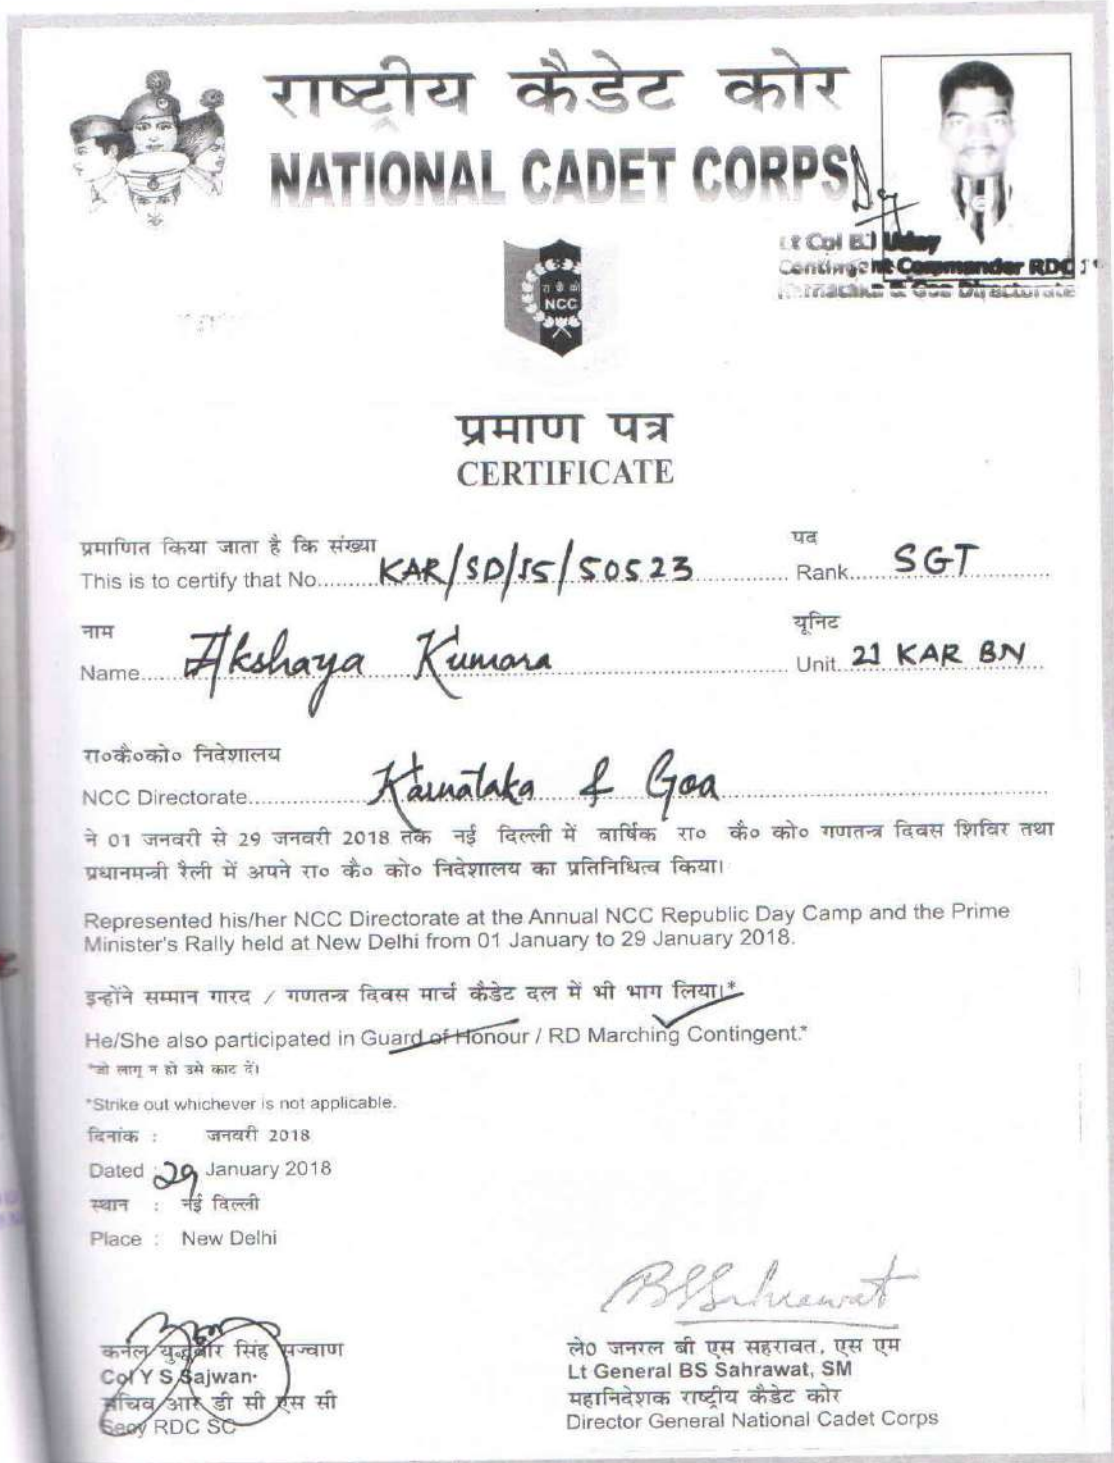 राष्ट्रीय कैडेट कोर
NATIONAL CADET CORPS
Lt Col BJ Uday
Contingent Commander RDC
Karnataka & Goa Directorate
रा कै को
NCC
प्रमाण पत्र
CERTIFICATE
प्रमाणित किया जाता है कि संख्या पद
This is to certify that No. KAR/SD/15/50523 Rank SGT
नाम यूनिट
Name Akshaya Kumara Unit 21 KAR BN
रा०कै०को० निदेशालय
NCC Directorate Karnataka & Goa
ने 01 जनवरी से 29 जनवरी 2018 तक नई दिल्ली में वार्षिक रा० कै० को० गणतन्त्र दिवस शिविर तथा
प्रधानमन्त्री रैली में अपने रा० कै० को० निदेशालय का प्रतिनिधित्व किया।
Represented his/her NCC Directorate at the Annual NCC Republic Day Camp and the Prime
Minister's Rally held at New Delhi from 01 January to 29 January 2018.
इन्होंने सम्मान गारद / गणतन्त्र दिवस मार्च कैडेट दल में भी भाग लिया।*
He/She also participated in Guard of Honour / RD Marching Contingent.*
*जो लागू न हो उसे काट दें।
*Strike out whichever is not applicable.
दिनांक : जनवरी 2018
Dated : 29 January 2018
स्थान : नई दिल्ली
Place : New Delhi
BSSahrawat
कर्नल युद्धवीर सिंह सज्वाण
Col Y S Sajwan
सचिव आर डी सी एस सी
Secy RDC SC
ले० जनरल बी एस सहरावत, एस एम
Lt General BS Sahrawat, SM
महानिदेशक राष्ट्रीय कैडेट कोर
Director General National Cadet Corps